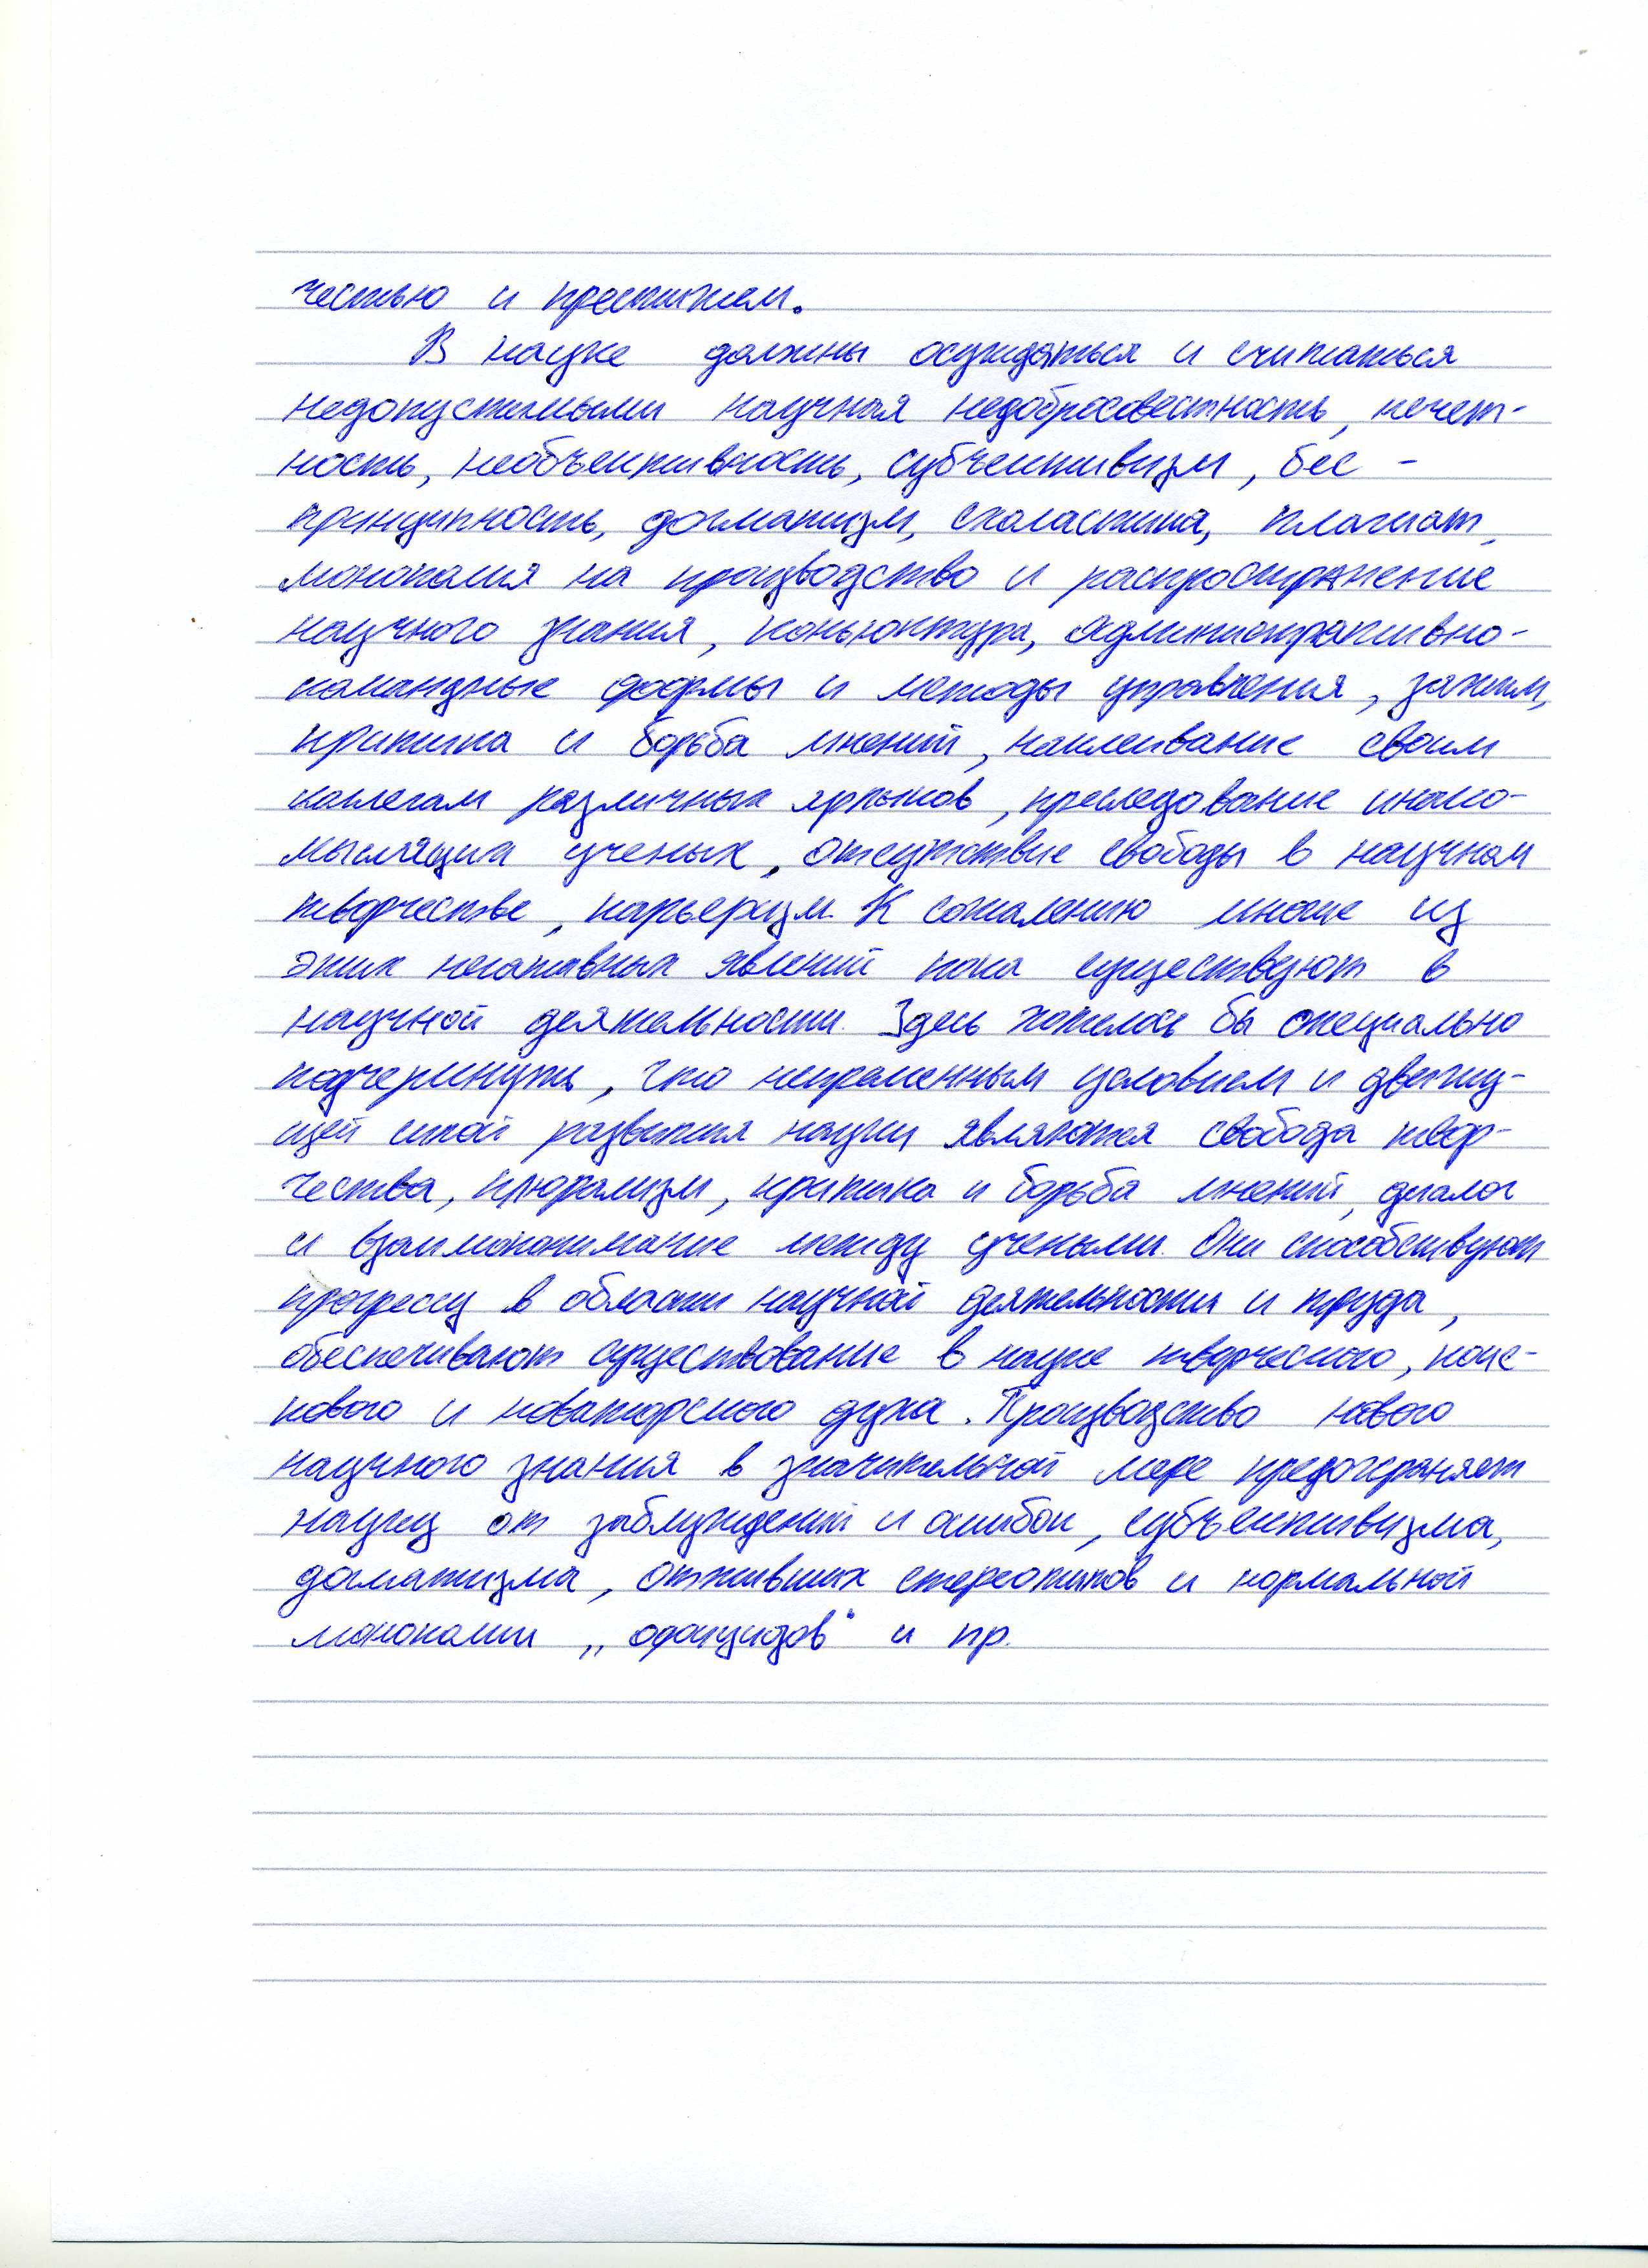 честью и престижем.
В науке должны осуждаться и считаться
недопустимыми научная недобросовестность, нечест-
ность, необъективность, субъективизм, бес-
принципность, догматизм, схоластика, плагиат,
монополия на производство и распространение
научного знания, коньюктура, административно-
командные формы и методы управления, зажим,
критика и борьба мнений, наклеивание своим
коллегам различных ярлыков, преследование инако-
мыслящих ученых, отсутствие свободы в научном
творчестве, карьеризм. К сожалению многие из
этих негативных явлений пока существуют в
научной деятельности. Здесь хотелось бы специально
подчеркнуть, что непременным условием и движу-
щей силой развития науки являются свобода твор-
чества, плюрализм, критика и борьба мнений, диалог
и взаимопонимание между учеными. Они способствуют
прогрессу в области научной деятельности и труда,
обеспечивают существование в науке творческого, поис-
кового и новаторского духа. Производство нового
научного знания в значительной мере предохраняет
науку от заблуждений и ошибок, субъективизма,
догматизма, отживших стереотипов и нормальной
монополии „официозов“ и пр.